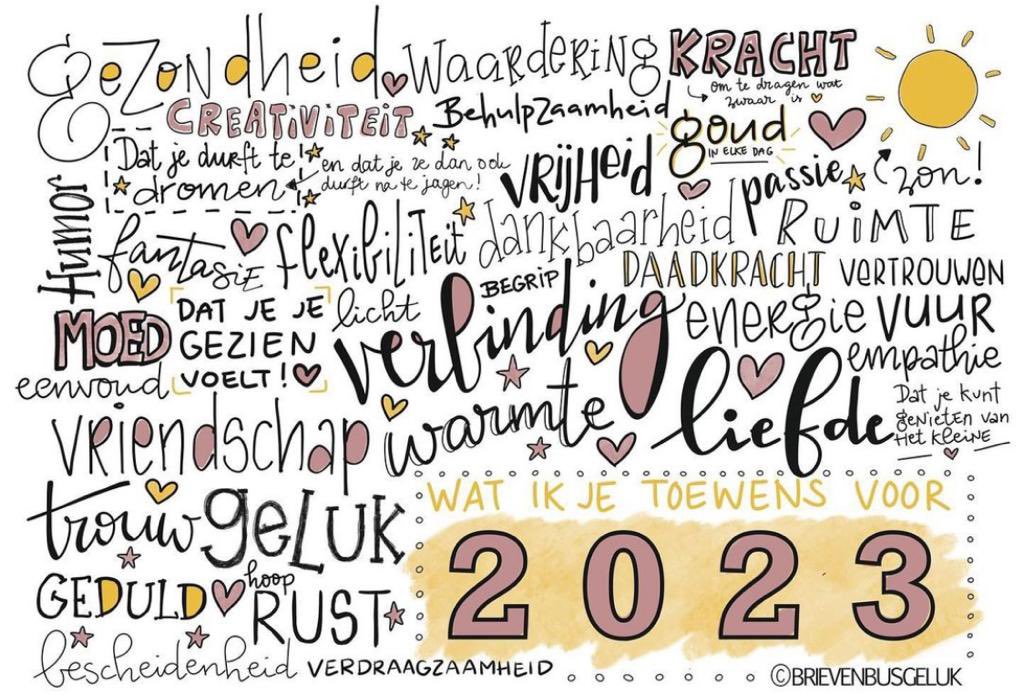 Gezondheid
Waardering
KRACHT
om te dragen wat
zwaar is
&
CREATIVITEIT
Behulpzaamheid
goud
IN ELKE DAG
zon!
Dat je durft te
dromen
en dat je ze dan ook
durft na te jagen!
VRIJHEID
passie
Humor
fantasie
flexibiliteit
dankbaarheid
RUIMTE
BEGRIP
DAADKRACHT
VERTROUWEN
MOED
DAT JE JE
GEZIEN
VOELT!
licht
verbinding
energie
VUUR
empathie
eenvoud
vriendschap
warmte
liefde
Dat je kunt
genieten van
Het kleine
trouw
geluk
WAT IK JE TOEWENS VOOR
2023
GEDULD
hoop
RUST
bescheidenheid
VERDRAAGZAAMHEID
©BRIEVENBUSGELUK